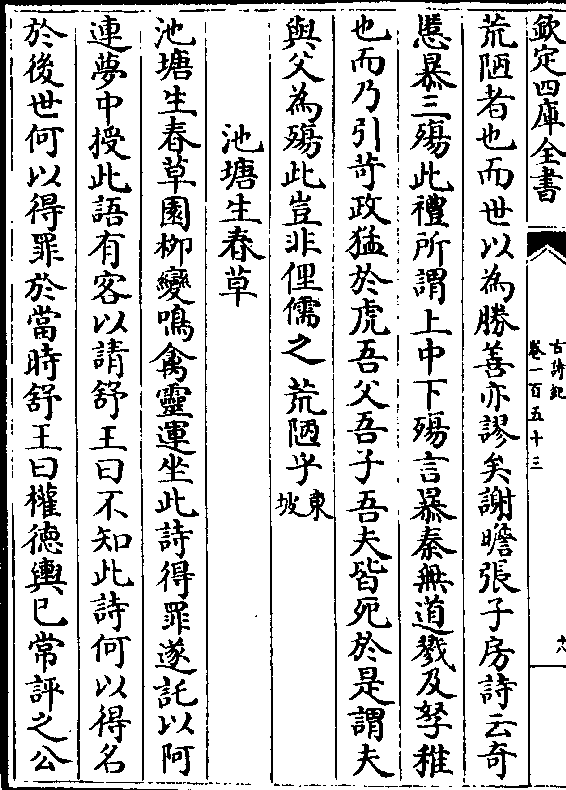 欽定四庫全書
古詩紀
卷一百五十三
十六
荒陋者也而世以為勝善亦謬矣謝瞻張子房詩云竒
慝暴三殤此禮所謂上中下殤言暴秦無道戮及孥稚
也而乃引苛政猛於虎吾父吾子吾夫皆死於是謂夫
與父為殤此豈非俚儒之荒陋乎東坡
池塘生春草
池塘生春草園柳變鳴禽靈運坐此詩得罪遂託以阿
連夢中授此語有客以請舒王曰不知此詩何以得名
於後世何以得罪於當時舒王曰權德輿已常評之公